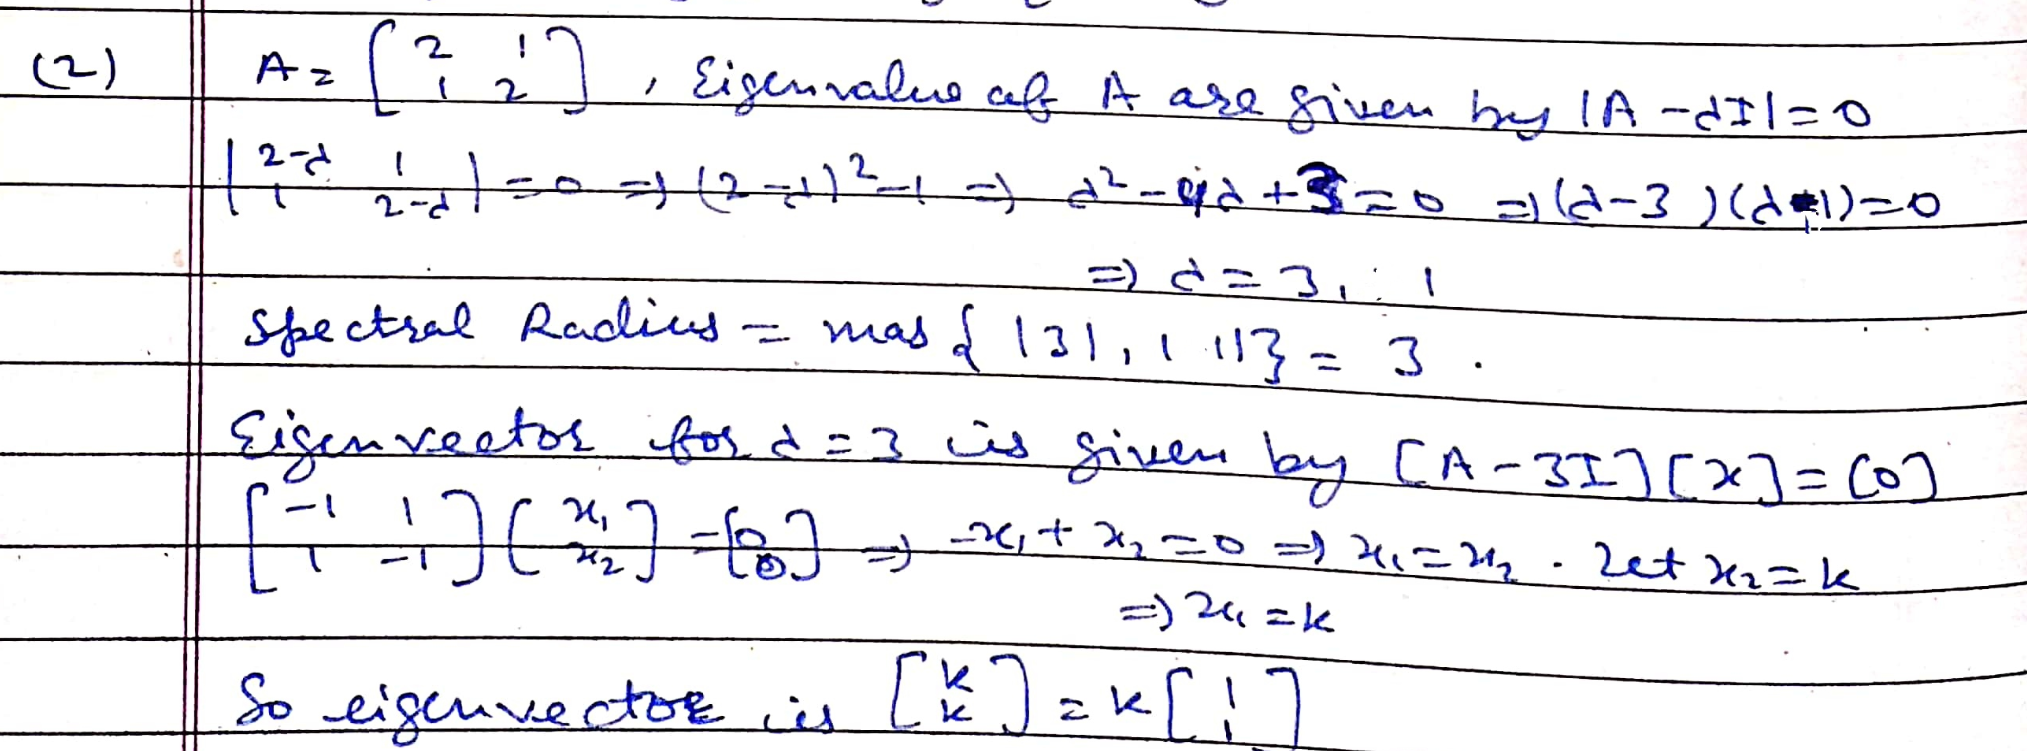 (2) A = [2 1; 1 2], Eigenvalue of A are given by |A - λI| = 0
|2-λ 1; 1 2-λ| = 0 => (2-λ)² - 1 => λ² - 4λ + 3 = 0 => (λ-3)(λ-1) = 0
=> λ = 3, 1
Spectral Radius = max {|3|, |1|} = 3.
Eigenvector for λ = 3 is given by [A - 3I][x] = [0]
[-1 1; 1 -1][x₁; x₂] = [0; 0] => -x₁ + x₂ = 0 => x₁ = x₂. Let x₂ = k
=> x₁ = k
So eigenvector is [k; k] = k[1; 1]